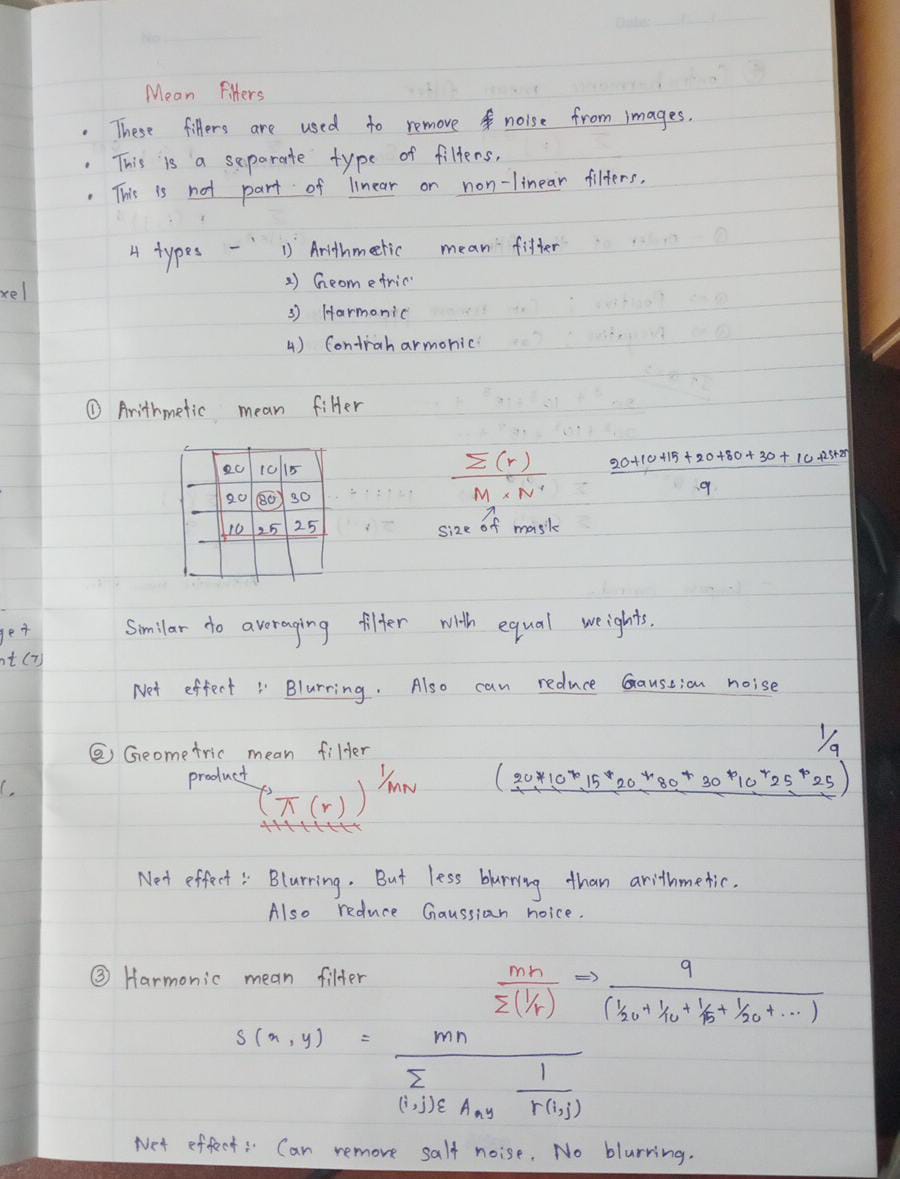 No
Date:
Mean Filters
• These filters are used to remove noise from images.
• This is a separate type of filters.
• This is not part of linear or non-linear filters.
4 types - 1) Arithmetic mean filter
2) Geometric
3) Harmonic
4) Contraharmonic
xel
① Arithmetic mean filter
20 10 15
20 80 30
10 25 25
Σ(r) / M × N
size of mask
20+10+15+20+80+30+10+25+25 / 9
get
nt (7)
Similar to averaging filter with equal weights.
Net effect :- Blurring. Also can reduce Gaussian noise
② Geometric mean filter
product
(π (r))^1/MN
(20*10*15*20*80*30*10*25*25)^1/9
Net effect :- Blurring. But less blurring than arithmetic.
Also reduce Gaussian noice.
③ Harmonic mean filter
mn / Σ(1/r) => 9 / (1/20 + 1/10 + 1/15 + 1/20 + ...)
S(x,y) = mn / Σ (i,j)∈ Axy 1 / r(i,j)
Net effect :- Can remove salt noise. No blurring.